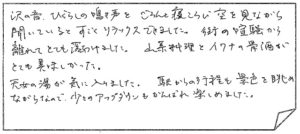 沢の音、ひぐらしの鳴き声をごろんと寝ころび空を見ながら
聞いているとすごくリラックスできました。街の喧騒から
離れてとても落ちつけました。山菜料理とイワナの骨酒が
とても美味しかった。
天女の湯が気に入りました。駅からの行程も景色を眺め
ながらなので少々のアップダウンもがんばれ楽しめました。